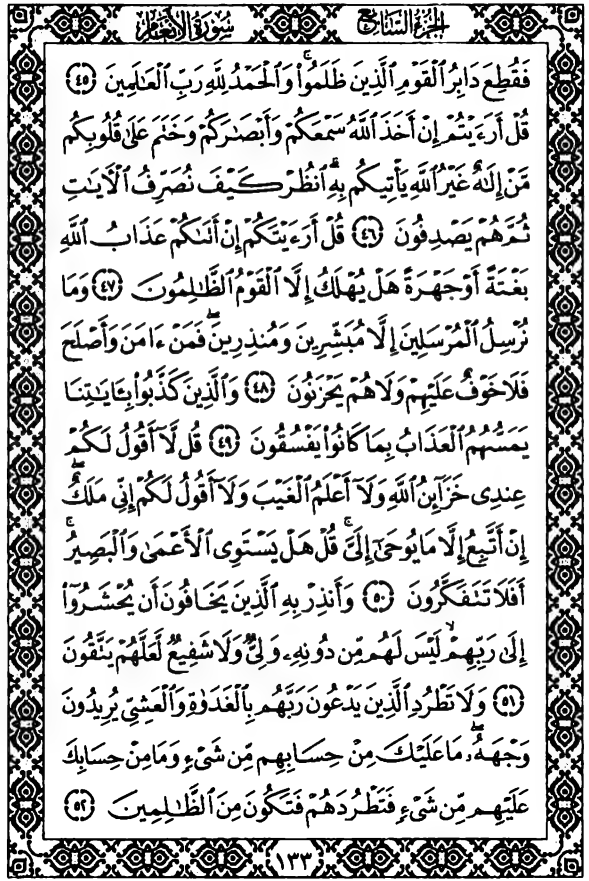 الجزء السابع
سورة الأنعام
فَقُطِعَ دَابِرُ ٱلۡقَوۡمِ ٱلَّذِينَ ظَلَمُواْۚ وَٱلۡحَمۡدُ لِلَّهِ رَبِّ ٱلۡعَٰلَمِينَ ٤٥
قُلۡ أَرَءَيۡتُمۡ إِنۡ أَخَذَ ٱللَّهُ سَمۡعَكُمۡ وَأَبۡصَٰرَكُمۡ وَخَتَمَ عَلَىٰ قُلُوبِكُم
مَّنۡ إِلَٰهٌ غَيۡرُ ٱللَّهِ يَأۡتِيكُم بِهِۗ ٱنظُرۡ كَيۡفَ نُصَرِّفُ ٱلۡأٓيَٰتِ
ثُمَّ هُمۡ يَصۡدِفُونَ ٤٦ قُلۡ أَرَءَيۡتَكُمۡ إِنۡ أَتَىٰكُمۡ عَذَابُ ٱللَّهِ
بَغۡتَةً أَوۡ جَهۡرَةً هَلۡ يُهۡلَكُ إِلَّا ٱلۡقَوۡمُ ٱلظَّٰلِمُونَ ٤٧ وَمَا
نُرۡسِلُ ٱلۡمُرۡسَلِينَ إِلَّا مُبَشِّرِينَ وَمُنذِرِينَۖ فَمَنۡ ءَامَنَ وَأَصۡلَحَ
فَلَا خَوۡفٌ عَلَيۡهِمۡ وَلَا هُمۡ يَحۡزَنُونَ ٤٨ وَٱلَّذِينَ كَذَّبُواْ بِـَٔايَٰتِنَا
يَمَسُّهُمُ ٱلۡعَذَابُ بِمَا كَانُواْ يَفۡسُقُونَ ٤٩ قُل لَّآ أَقُولُ لَكُمۡ
عِندِي خَزَآئِنُ ٱللَّهِ وَلَآ أَعۡلَمُ ٱلۡغَيۡبَ وَلَآ أَقُولُ لَكُمۡ إِنِّي مَلَكٌۖ
إِنۡ أَتَّبِعُ إِلَّا مَا يُوحَىٰٓ إِلَيَّۚ قُلۡ هَلۡ يَسۡتَوِي ٱلۡأَعۡمَىٰ وَٱلۡبَصِيرُۚ
أَفَلَا تَتَفَكَّرُونَ ٥٠ وَأَنذِرۡ بِهِ ٱلَّذِينَ يَخَافُونَ أَن يُحۡشَرُوٓاْ
إِلَىٰ رَبِّهِمۡۙ لَيۡسَ لَهُم مِّن دُونِهِۦ وَلِيٌّ وَلَا شَفِيعٌ لَّعَلَّهُمۡ يَتَّقُونَ
٥١ وَلَا تَطۡرُدِ ٱلَّذِينَ يَدۡعُونَ رَبَّهُم بِٱلۡغَدَوٰةِ وَٱلۡعَشِيِّ يُرِيدُونَ
وَجۡهَهُۥۖ مَا عَلَيۡكَ مِنۡ حِسَابِهِم مِّن شَيۡءٍ وَمَا مِنۡ حِسَابِكَ
عَلَيۡهِم مِّن شَيۡءٍ فَتَطۡرُدَهُمۡ فَتَكُونَ مِنَ ٱلظَّٰلِمِينَ ٥٢
١٣٣